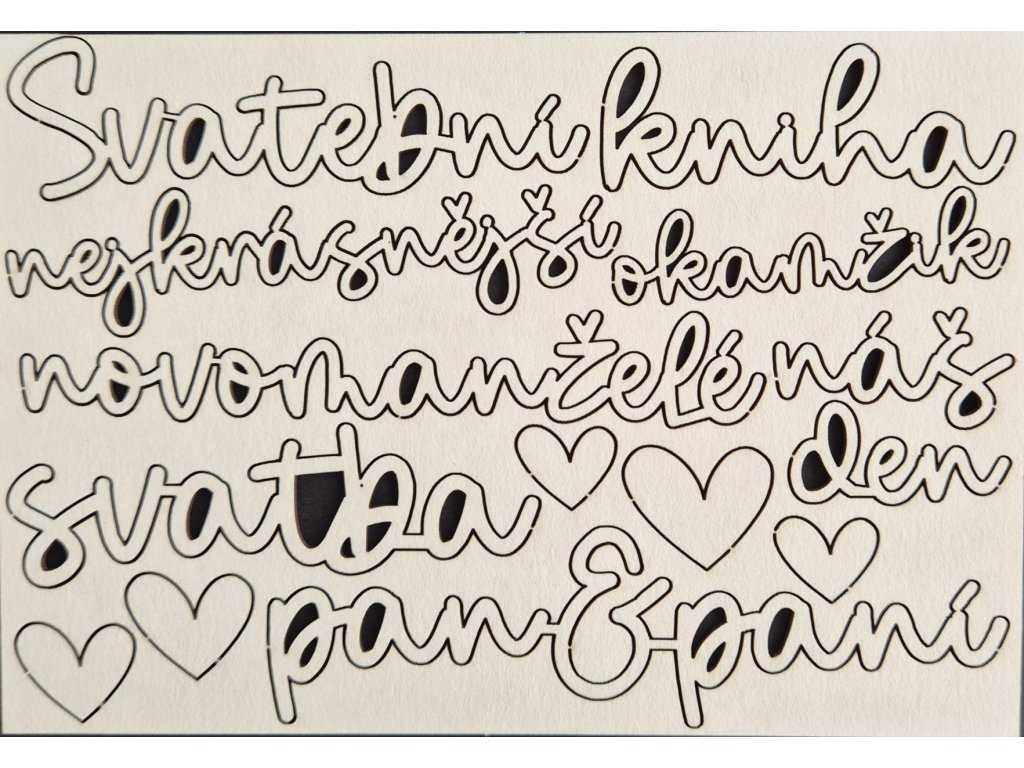 Svatební kniha
nejkrásnější okamžik
novomanželé náš
svatba den
pan & paní